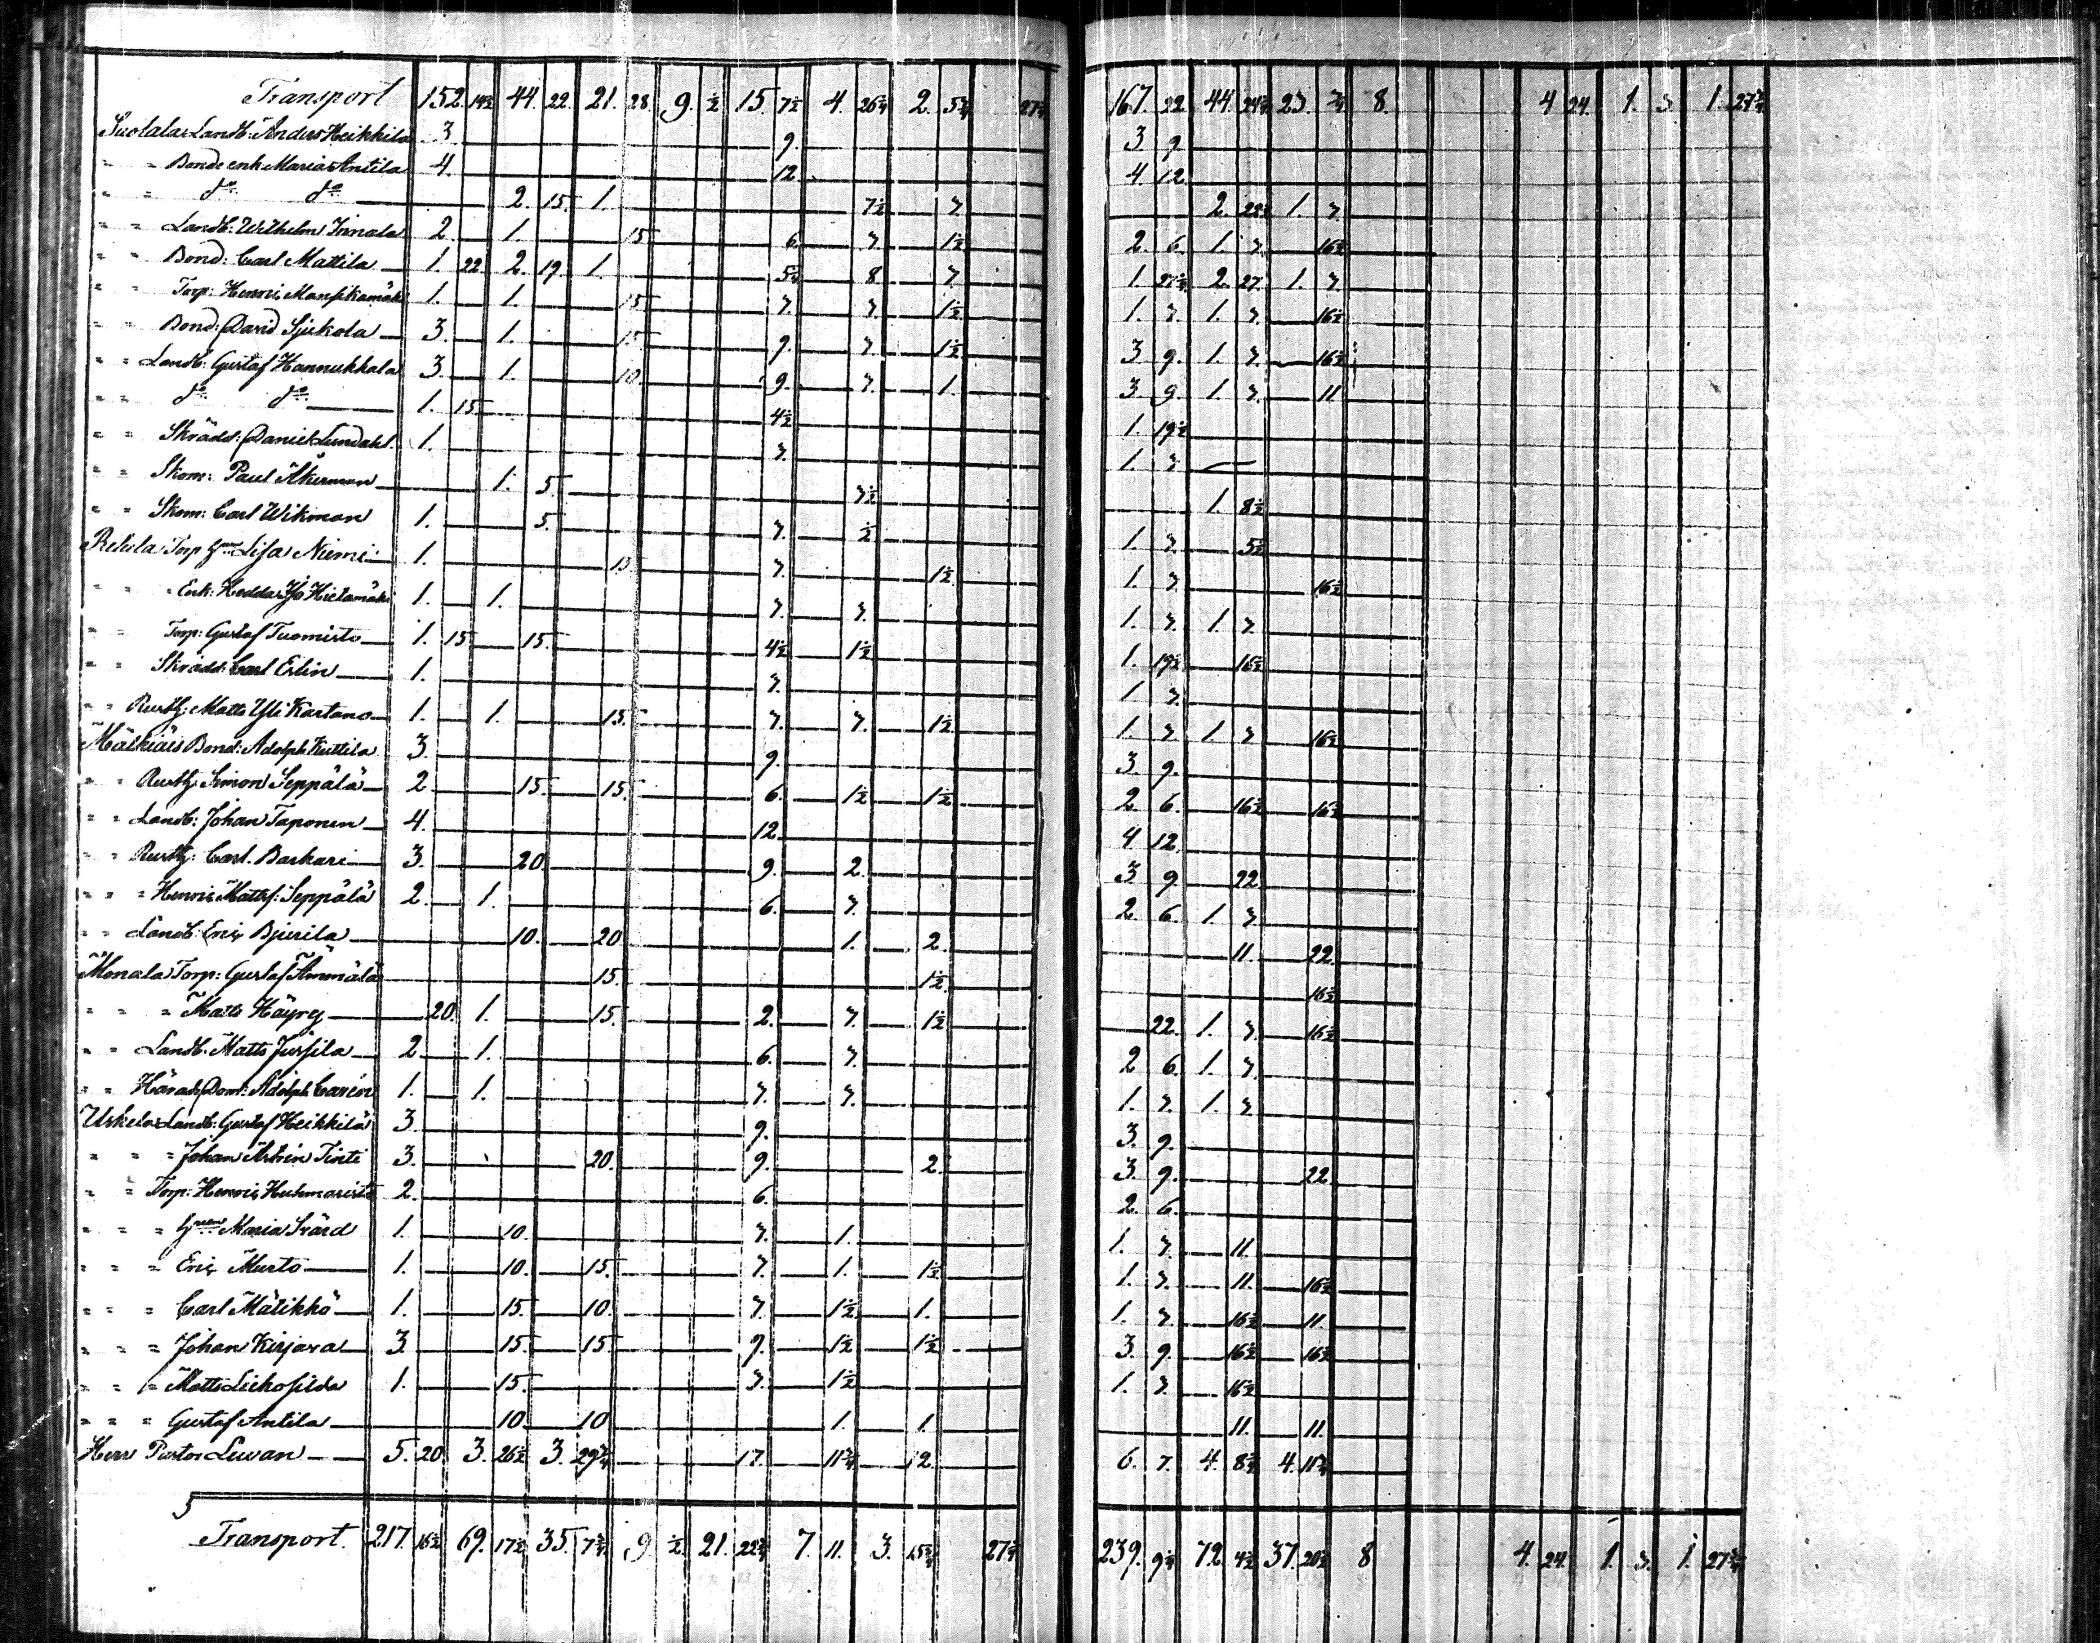 Transport 152. 14½ 44. 22. 21. 28. 9. ½ 15. 7½ 4. 26¼ 2. 5¾ 27¾ 167. 22 44. 24¾ 23. ¾ 8. 4 24. 1. 3. 1. 27¾
Suolala Landb: Anders Heikkilä 3. 9. 3 9
" " Bonde enk. Maria Antila 4. 12. 4. 12
" " do do 2. 15. 1. 7½ 3. 2. 22½ 1. 3.
" " Landb: Wilhelm Innala 2. 1. 15. 6. 3. 1½ 2. 6. 1. 3. 16½
" " Bond: Carl Mattila 1. 22 2. 19. 1. 5¼ 8. 3. 1 27¼ 2. 27. 1. 3
" " Torp: Henric Mansikamäki 1. 1. 15 3. 3. 1½ 1. 3. 1. 3. 16½
" " Bond: David Sjukola 3. 1. 15. 9. 3. 1½ 3 9. 1. 3. 16½
" " Landb: Gustaf Hannukkala 3. 1. 10. 9. 3. 1. 3. 9. 1. 3. 11
" " do do 1. 15. 4½ 1. 19½
" " Skrädd: Daniel Lundahl. 1. 3. 1. 3.
" " Skom: Paul Åkerman 1. 5. 3½ 1. 8½
" " Skom: Carl Wikman 1. 5. 3. ½ 1. 3. 5½
Rekila Torp hu Lisa Niemi 1. 15. 3. 1½ 1. 3. 16½
" " Enk: Hedda Hietamäki 1. 1. 3. 3. 1. 3. 1. 3
" " Torp: Gustaf Tuomisto 1. 15. 15. 4½ 1½ 1. 19½ 16½
" " Skrädd: Carl Erlin 1. 3. 1. 3.
" " Rusth: Matts Yli Kartano 1. 1. 15. 3. 3. 1½ 1. 3. 1. 3 16½
Mälkiäis Bond: Adolph Kuttila 3. 9. 3. 9.
" " Rusth: Simon Seppälä 2 15. 15. 6. 1½ 1½ 2. 6. 16½ 16½
" " Landb: Johan Taponen 4. 12. 4 12.
" " Rusth: Carl Barkari 3. 20. 9. 2. 3 9. 22.
" " " Henric Mattss: Seppälä 2. 1. 6. 3. 2. 6 1. 3
" " Landb: Eric Bjurila 10. 20 1. 2. 11. 22.
Monala Torp: Gustaf Ammälä 15. 1½ 16½
" " " Matts Häyry 20. 1. 15. 2. 3. 1½ 22. 1. 3. 16½
" " Landb: Matts Jussila 2. 1. 6. 3. 2 6. 1. 3.
" " Härads Dom: Adolph Carén 1. 1. 3. 3. 1. 3. 1. 3
Uskela Landb: Gustaf Heikkilä 3. 9. 3. 9.
" " " Johan Tinti 3. 20. 9. 2. 3. 9. 22.
" " Torp: Henric Huhmaristo 2. 6. 2. 6.
" " " Maria Svärd 1. 10. 3. 1. 1. 3. 11.
" " " Eric Murto 1. 10. 15. 3. 1. 1½ 1. 3. 11. 16½
" " " Carl Mätikkö 1. 15. 10. 3. 1½ 1. 1. 3. 16½ 11.
" " " Johan Kirjava 3. 15. 15. 9. 1½ 1½ 3 9. 16½ 16½
" " " Matts 1. 15. 3. 1½ 1. 3. 16½
" " " Gustaf Antila 10. 10 1. 1. 11. 11.
Herr Pastor Luvan 5. 20 3. 26½ 3. 29¾ 17. 11¾ 12. 6. 7. 4. 8¾ 4. 11¾
Transport. 217. 16½ 69. 17½ 35. 7¾ 9 ½ 21. 22¾ 7. 11. 3. 15¾ 27¾ 239. 9¼ 72. 4½ 37. 20½ 8 4. 24. 1. 3. 1. 27¾